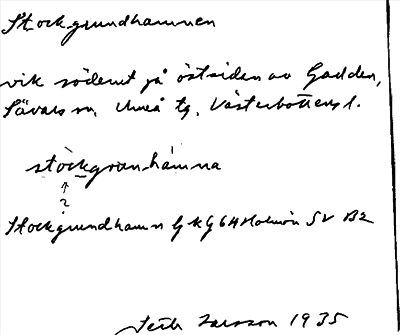 Stockgrundhamnen
vik söderut på östsidan av Gadden,
Sävars sn, Umeå tg, Västerbottens l.
stockgronhamna
↑
?
Stockgrundhamn GKG 64 Holmön SV B2
Larsson 1935